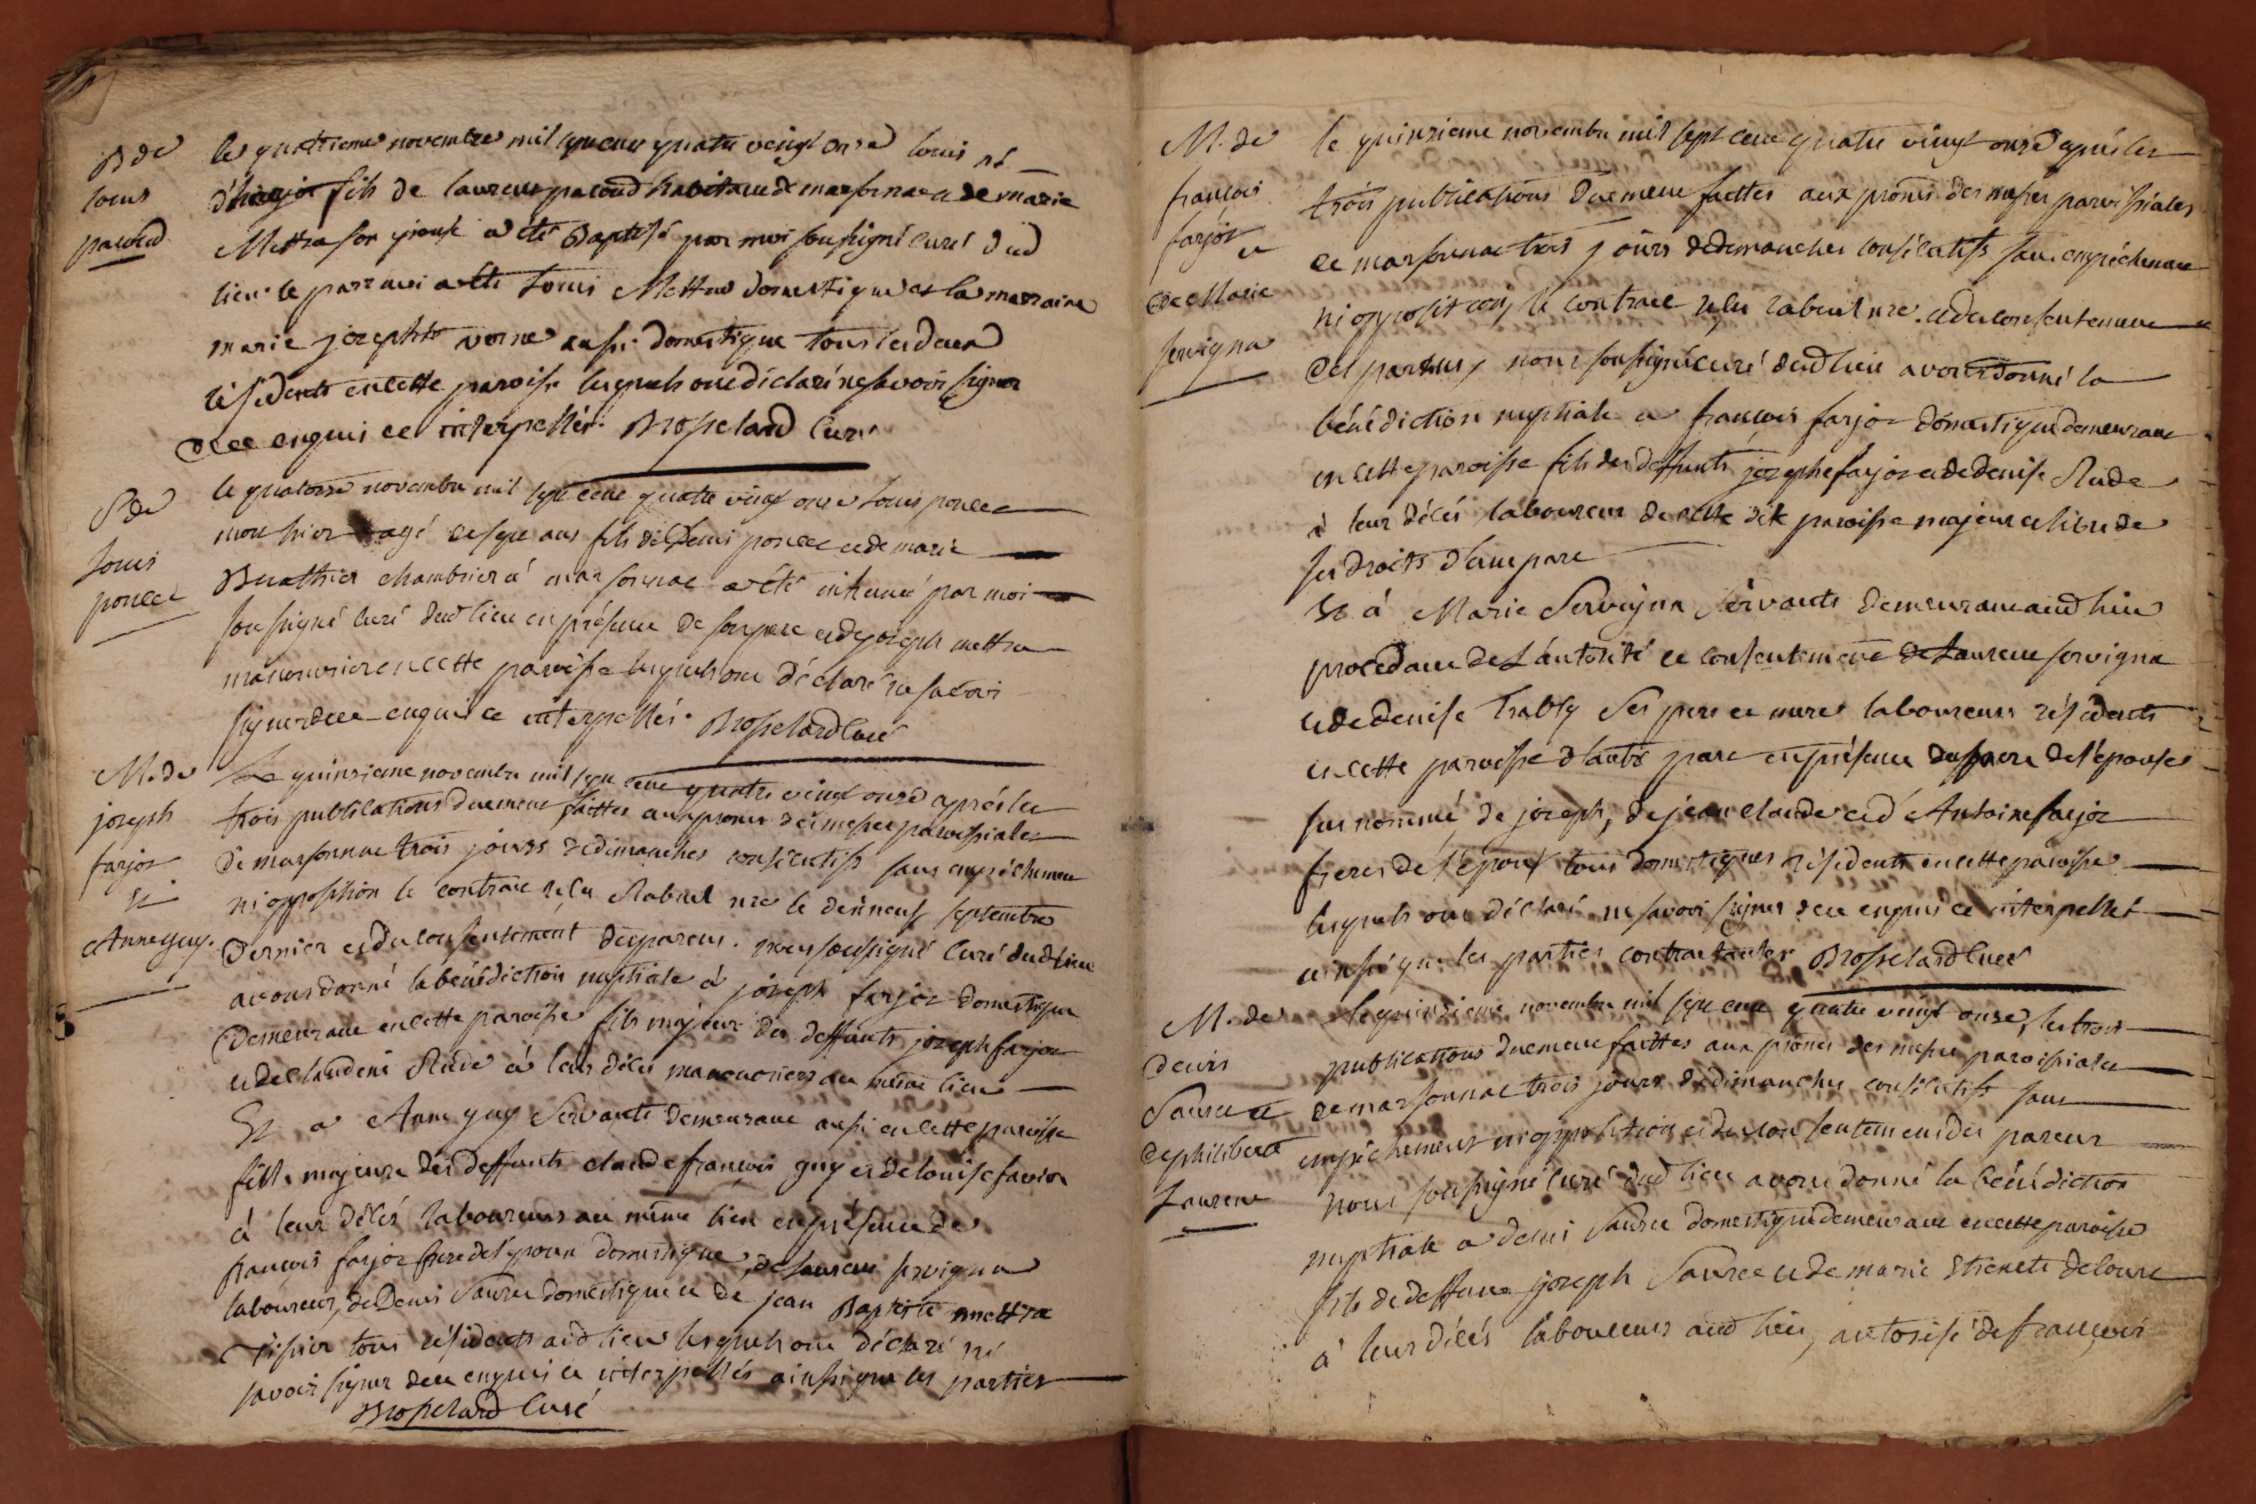 B de
louis
pacoud
le quatrieme novembre mil sept cent quatre vingt onze louis né
d'hier fils de laurent pacoud habitant de marsonnac et de marie
Mettra son epouse a eté Baptisé par moi soussigné curé dud
lieu. le parrain a eté Louis Mettra domestique et la marraine
marie josephte vorne aussi domestique tous les deux
résidents en cette paroisse lesquels ont déclaré ne savoir signer
de ce enquis et interpellés. Brosselard Curé
S de
Louis
poncet
le quatorze novembre mil sept cent quatre vingt onze Louis poncet
mort hier agé de sept ans fils de Denis poncet et de marie
Buathier chambrier à marsonnac a été inhumé par moi
soussigné curé dud lieu en présence de son pere et de joseph mettra
manouvrier en cette paroisse lesquels ont déclaré ne savoir
signer de ce enquis et interpellés. Brosselard Curé
M. de
joseph
farjot
et
Anne guy.
Le quinzieme novembre mil sept cent quatre vingt onze après les
trois publications duement faittes aux prones des messes paroissiales
de marsonnac trois jours de dimanches consécutifs sans empêchement
ni opposition le contrat reçu Rabuel nre le dixneuf septembre
dernier et du consentement des parens. nous soussigné Curé dud lieu
avons donné la bénédiction nuptiale à joseph farjot domestique
demeurant en cette paroisse fils majeur des deffunts joseph farjot
et de claudine Rude à leur décès manouvriers au même lieu
Et a Anne guy servante demeurant aussi en cette paroisse
fille majeure des deffunts claude françois guy et de louise favier
à leur décès laboureurs au même lieu en présence de
françois farjot frere de l'epoux domestique, de Laurent servignat
laboureur, de Denis Sauree domestique et de jean Baptiste mettra
tissier tous résidents aud lieu lesquels ont déclaré ne
savoir signer de ce enquis et interpellés ainsi que les parties
Brosselard Curé
M. de
françois
farjot
et
de Marie
servigna
le quinzieme novembre mil sept cent quatre vingt onze après les
trois publications duement faittes aux prones des messes paroissiales
de marsonnac trois jours de dimanches consécutifs sans empêchement
ni opposition, le contrat reçu rabuel nre. et du consentement
des parens, nous soussigné curé dud lieu avons donné la
bénédiction nuptiale a françois farjot domestique demeurant
en cette paroisse fils des deffunts josephe farjot et de denise Rude
à leur décès laboureurs de cette dite paroisse majeur et libre de
ses droits d'une part
Et à Marie Servigna servante demeurant aud lieu
procedant de L'autorité et consentement de Laurent servigna
et de denise trably ses pere et mere laboureurs résidents
en cette paroisse d'autre part en présence du pere de l'epouse
sus nommé, de joseph, de jean claude et d'Antoine farjot
freres de l'epoux tous domestiques résidents en cette paroisse
lesquels ont déclaré ne savoir signer de ce enquis et interpellés
ainsi que les parties contractantes Brosselard Curé
M. de
denis
Sauree et
de philiberte
Laurent
le quinzieme novembre mil sept cent quatre vingt onze, les trois
publications duement faittes aux prones des messes paroissiales
de marsonnac trois jours de dimanches consécutifs sans
empêchement ni opposition et du consentement des parens
nous soussigné curé dud lieu avons donné la bénédiction
nuptiale a denis Sauree domestique demeurant en cette paroisse
fils de deffunt joseph Sauree et de marie
à leur décès laboureurs aud lieu, autorisé de françois